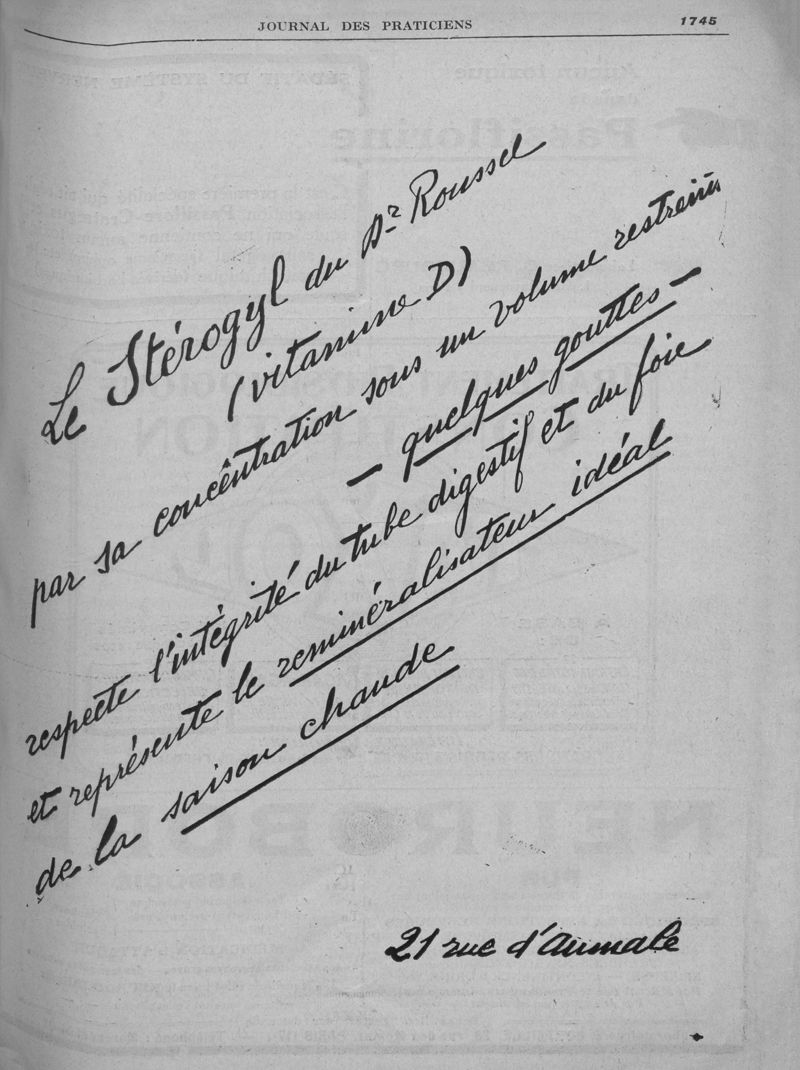 JOURNAL DES PRATICIENS 1745
Le Stérogyl du Dr Roussel
(vitamine D)
par sa concentration sous un volume restreint
— quelques gouttes —
respecte l'intégrité du tube digestif et du foie
et représente le reminéralisateur idéal
de la saison chaude
21 rue d'Aumale